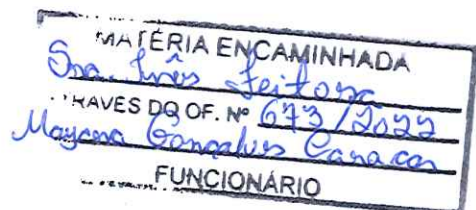 MATÉRIA ENCAMINHADA
Sra. Inês Feitosa
RAVÉS DO OF. Nº 673/2022
Mayana Gonçalves
FUNCIONÁRIO